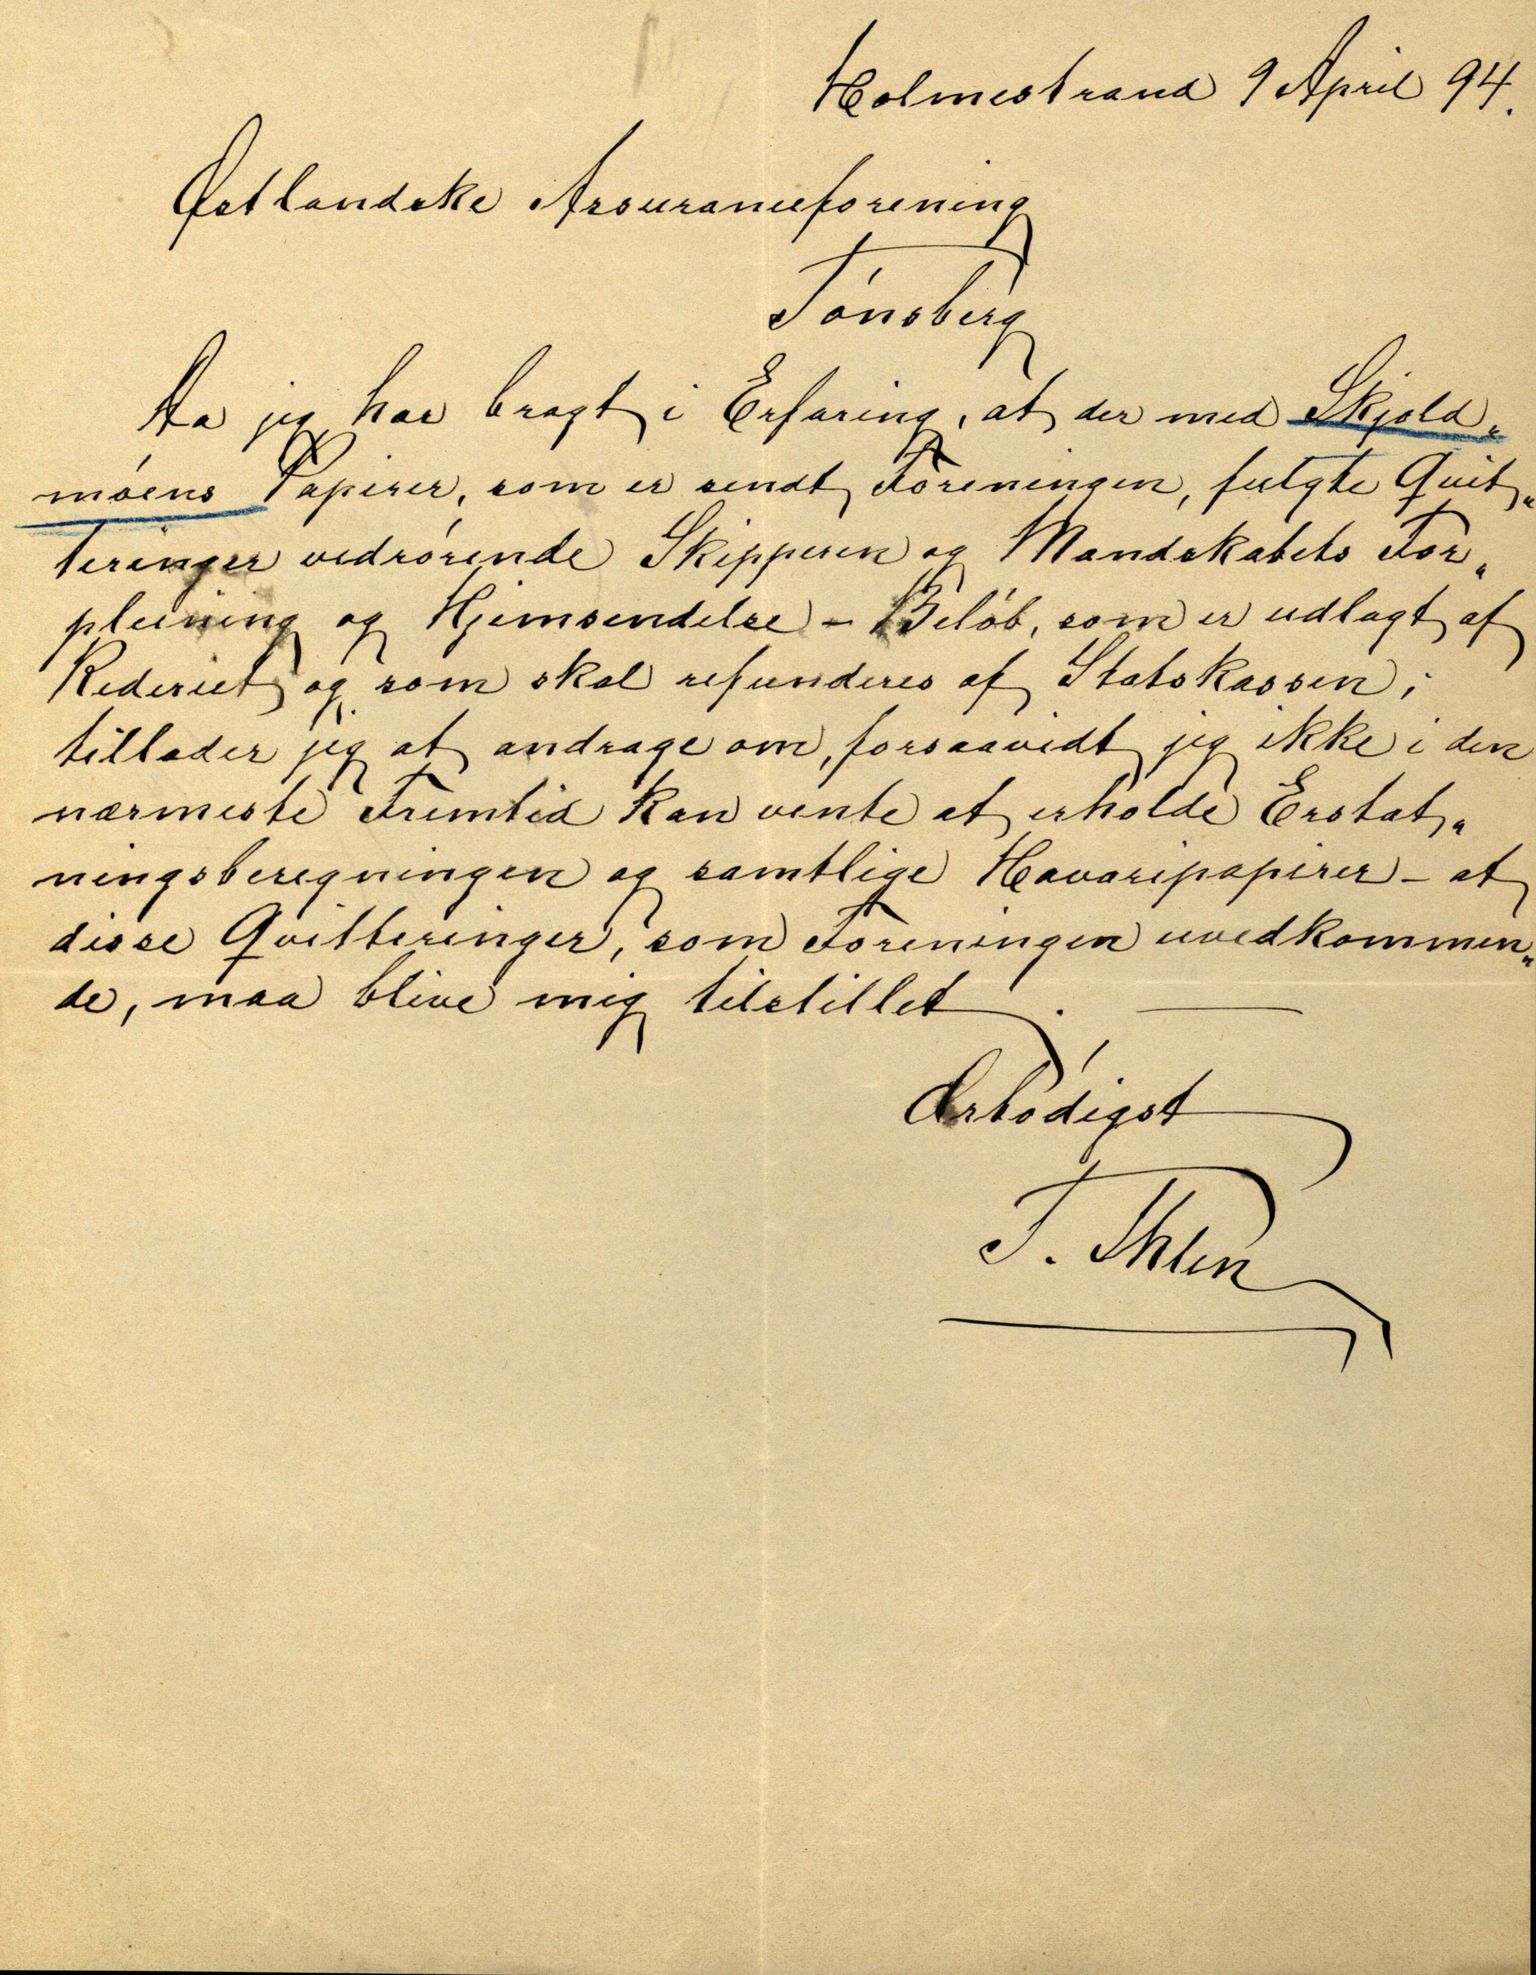 Holmestrand 9 April 94.
Østlandske Assuranceforening
Tónsberg
Da jeg har bragt i Erfaring, at der med Skjold„
móens Papirer, som er sendt Foreningen, fulgte Quit„
teringer vedrórende Skipperen og Mandskabets For„
pleining og Hjemsendelse – Belób, som er udlagt af
Rederiet og som skal refunderes af Statskassen,
tillader jeg at andrage om, forsaavidt jeg ikke i den
nærmeste Fremtid kan vente at erholde Erstat„
ningsberegningen og samtlige Havaripapirer – at
disse Qvitteringer, som Foreningen uvedkommen„
de, maa blive mig tilstillet. —
Ærbódigst
T. Ihlen